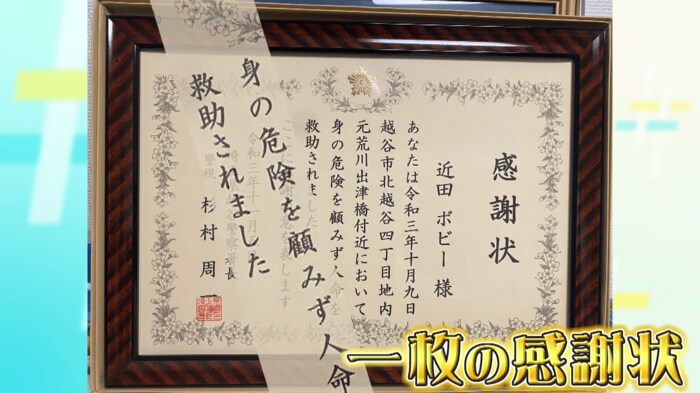 感謝状
近田 ボビー 様
あなたは令和三年十月九日
越谷市北越谷四丁目地内
元荒川出津橋付近において
身の危険を顧みず人命を
救助されました
身の危険を顧みず人命
救助されました
令和三年十一月
警視 杉村 周一
一枚の感謝状